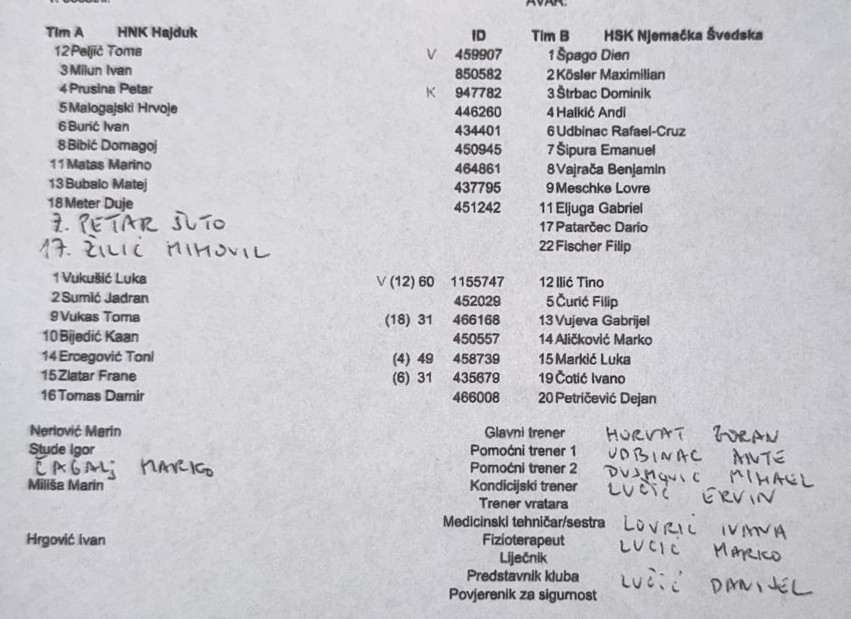 Tim A HNK Hajduk ID Tim B HSK Njemačka Švedska
12 Peljić Toma V 459907 1 Špago Dien
3 Milun Ivan 850582 2 Kösler Maximilian
4 Prusina Petar K 947782 3 Štrbac Dominik
5 Malogajski Hrvoje 446260 4 Halkić Andi
6 Burić Ivan 434401 6 Udbinac Rafael-Cruz
8 Bibić Domagoj 450945 7 Šipura Emanuel
11 Matas Marino 464861 8 Vajrača Benjamin
13 Bubalo Matej 437795 9 Meschke Lovre
18 Meter Duje 451242 11 Eljuga Gabriel
7. PETAR ŠUTO 17 Patarčec Dario
17. ŽILIĆ MIHOVIL 22 Fischer Filip
1 Vukušić Luka V (12) 60 1155747 12 Ilić Tino
2 Sumić Jadran 452029 5 Čurić Filip
9 Vukas Toma (18) 31 466168 13 Vujeva Gabrijel
10 Bijedić Kaan 450557 14 Aličković Marko
14 Ercegović Toni (4) 49 458739 15 Markić Luka
15 Zlatar Frane (6) 31 435679 19 Čotić Ivano
16 Tomas Damir 466008 20 Petričević Dejan
Nerlović Marin Glavni trener HORVAT ZORAN
Stude Igor Pomoćni trener 1 UDBINAC ANTE
ČAGALJ MARKO Pomoćni trener 2 MIHAEL
Miliša Marin Kondicijski trener LUČIĆ ERVIN
Trener vratara
Medicinski tehničar/sestra LOVRIĆ IVANA
Hrgović Ivan Fizioterapeut LUCIĆ MARKO
Liječnik
Predstavnik kluba LUČIĆ DANIJEL
Povjerenik za sigurnost